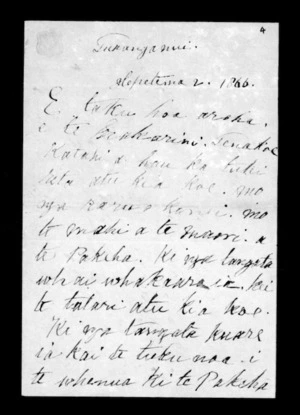 4
Turanganui.
Hepetema 2. 1866.
E taku hoa aroha.
i te Makarini. Tena koe
Katahi a hau ka tuhi
atu kia koe. mo
nga korero. mo
te mahi a te maori. a
te Pakeha. Ki nga tangata
whai whakaaro ia. kei
te tatari atu kia koe.
Ki nga tangata kuare
ia kai te tuku noa. i
te whenua ki te Pakeha